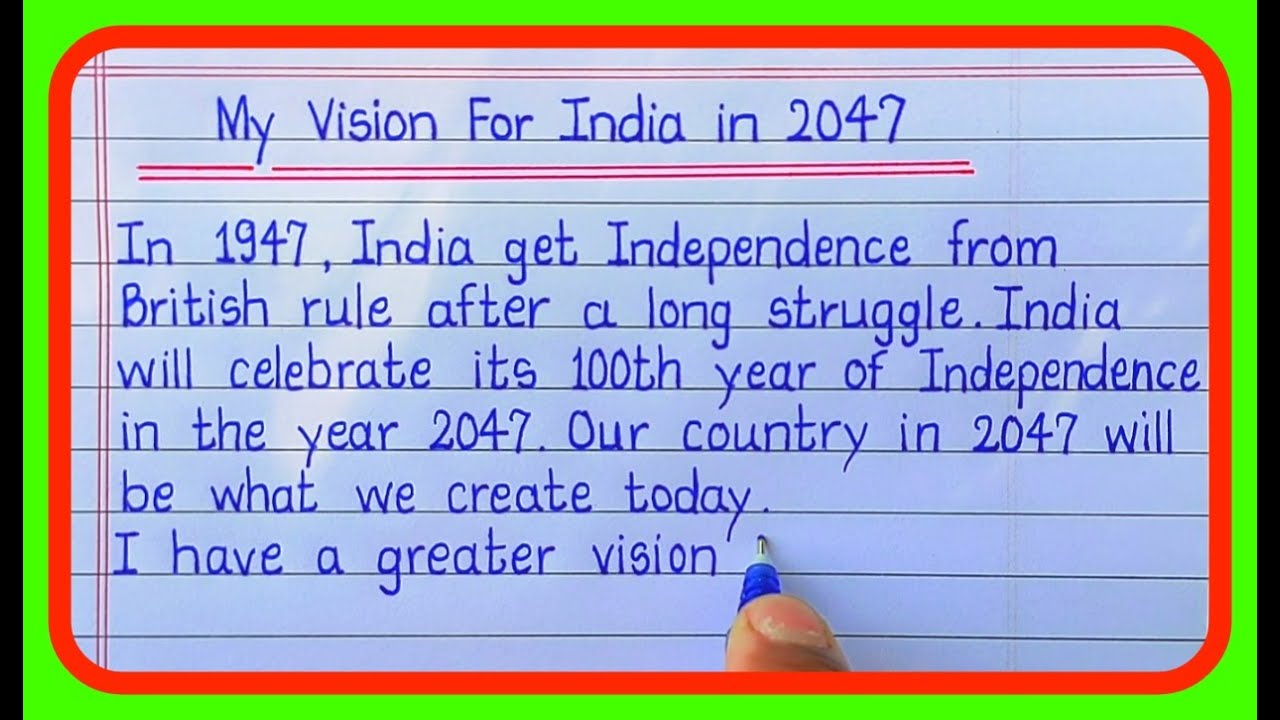 My Vision For India in 2047
In 1947, India get Independence from
British rule after a long struggle. India
will celebrate its 100th year of Independence
in the year 2047. Our country in 2047 will
be what we create today.
I have a greater vision